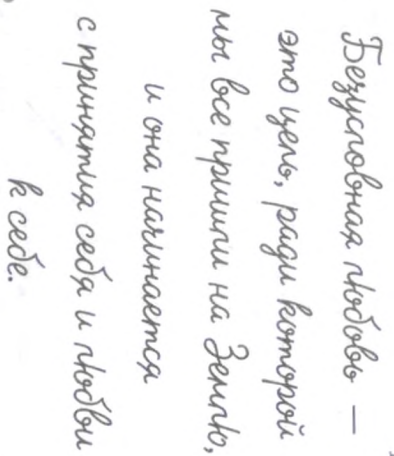 Безусловная любовь —
это цель, ради которой
мы все пришли на Землю,
и она начинается
с принятия себя и любви
к себе.